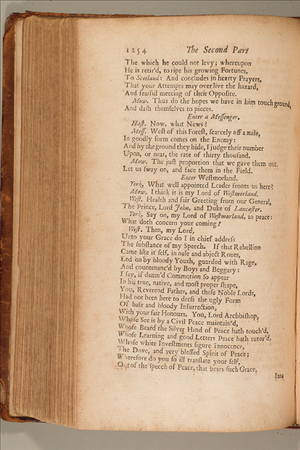 1254 The Second Part
The which he could not levy; whereupon
He is retir'd, to ripe his growing Fortunes,
To Scotland: And concludes in hearty Prayers,
That your Attempts may over live the hazard,
And fearful meeting of their Opposite.
Mow. Thus do the hopes we have in him touch ground,
And dash themselves to pieces.
Enter a Messenger.
Hast. Now, what News?
Mess. West of this Forest, scarcely off a mile,
In goodly form comes on the Enemy:
And by the ground they hide, I judge their number
Upon, or near, the rate of thirty thousand.
Mow. The just proportion that we gave them out.
Let us sway on, and face them in the Field.
Enter Westmorland.
York. What well appointed Leader fronts us here?
Mow. I think it is my Lord of Westmorland.
West. Health and fair Greeting from our General,
The Prince, Lord John, and Duke of Lancaster.
York. Say on, my Lord of Westmorland, in peace:
What doth concern your coming?
West. Then, my Lord,
Unto your Grace do I in chief address
The substance of my Speech. If that Rebellion
Came like it self, in base and abject Routs,
Led on by bloody Youth, guarded with Rage,
And countenanc'd by Boys and Beggary:
I say, if damn'd Commotion so appear
In his true, native, and most proper shape,
You, Reverend Father, and these Noble Lords,
Had not been here to dress the ugly Form
Of base and bloody Insurrection,
With your fair Honours. You, Lord Archbishop,
Whose See is by a Civil Peace maintain'd,
Whose Beard the Silver Hand of Peace hath touch'd,
Whose Learning and good Letters Peace hath tutor'd,
Whose white Investments figure Innocence,
The Dove, and very blessed Spirit of Peace;
Wherefore do you so ill translate your self,
Out of the Speech of Peace, that bears such Grace,